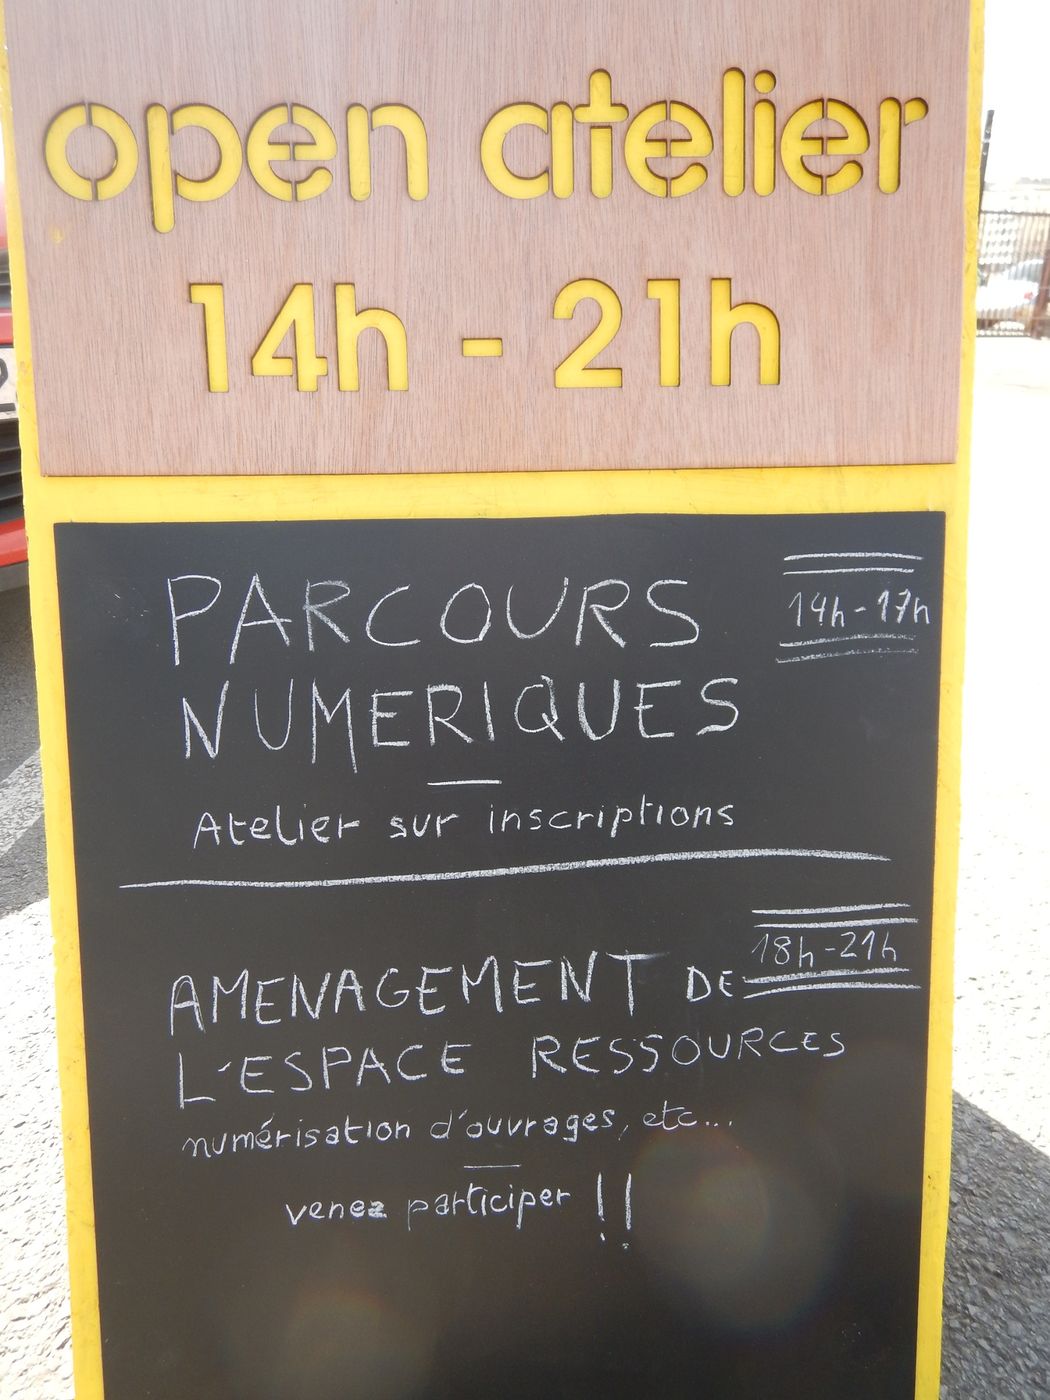 open atelier
14h - 21h
PARCOURS
14h-17h
NUMERIQUES
Atelier sur inscriptions
18h-21h
AMENAGEMENT DE
L'ESPACE RESSOURCES
numérisation d'ouvrages, etc...
venez participer !!